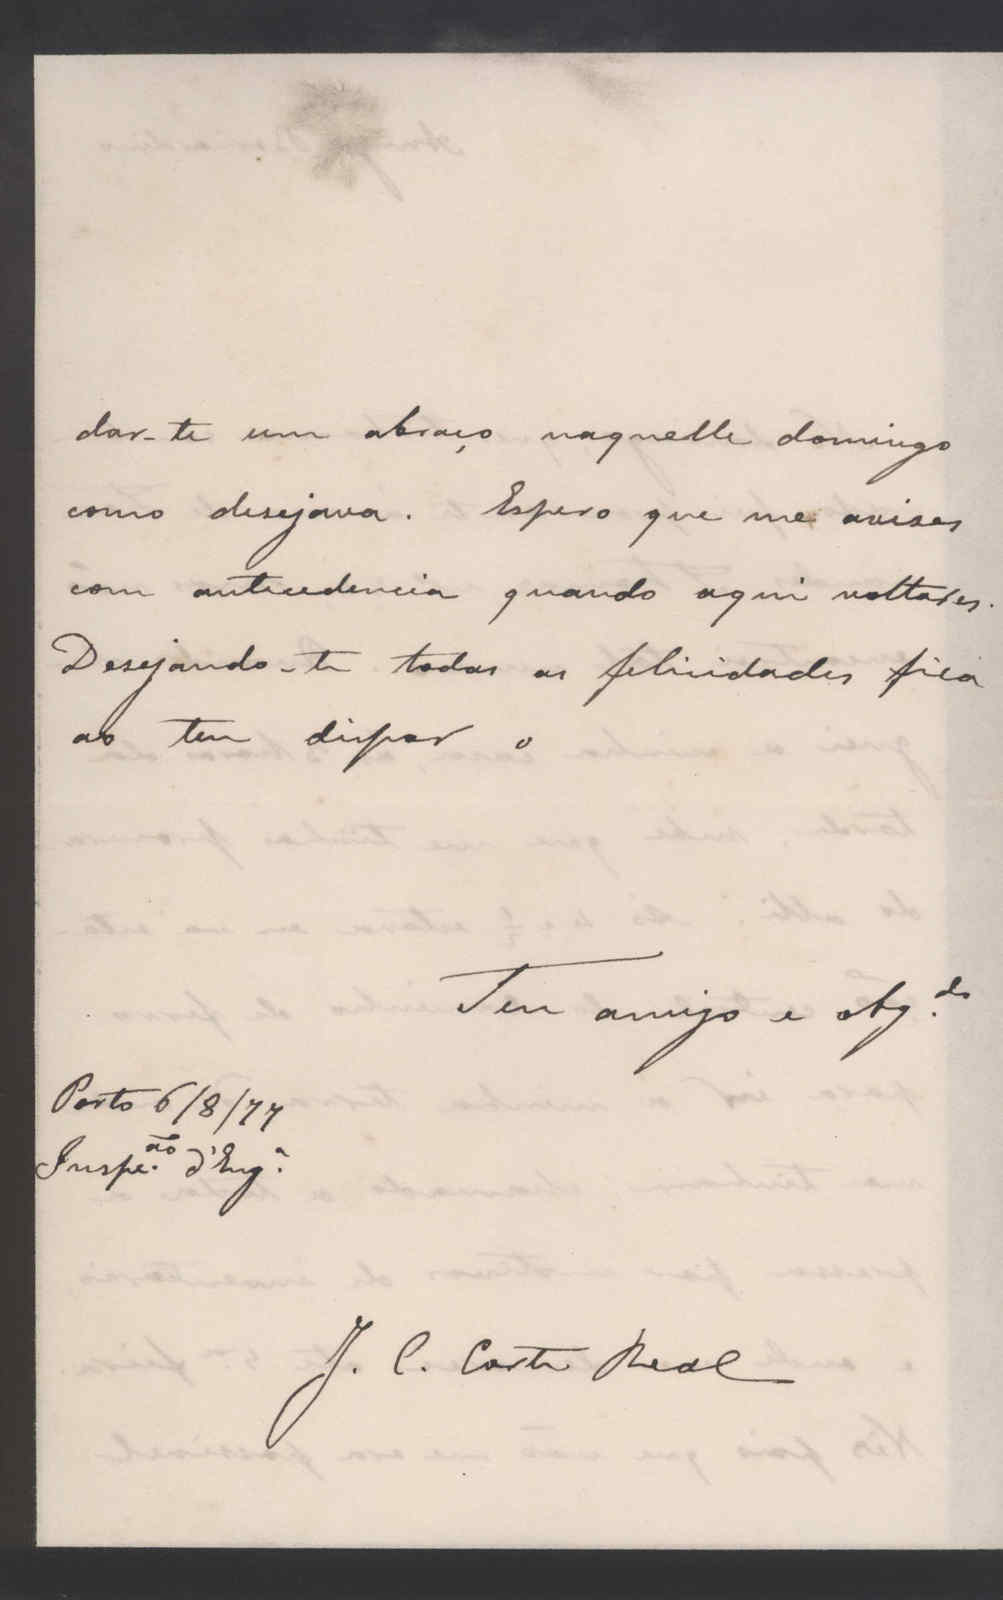 dar-te um abraço naquelle domingo
como desejava. Espero que me avises
com antecedencia quando aqui voltares.
Desejando-te todas as felicidades fica
ao teu dispor o
Teu amigo e obg.do
Porto 6/8/77
Inspe.ão d'Eng.a
J. C. Corte Real